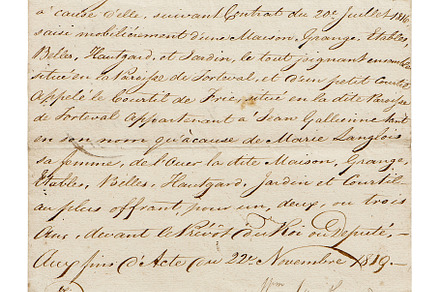 à cause d'elle, suivant Contrat du 20e Juillet 1816
saisi mobilièrement d'une Maison, Grange, Etables,
Belles, Hautgard, et Jardin, le tout joignant ensemble
situé en la Paroisse de Torteval, et d'un petit Courtil
appelé le Courtil de Frie, situé en la dite Paroisse
de Torteval appartenant à Jean Gallienne tant
en son nom qu'à cause de Marie Langlois
sa femme, de louer la dite Maison, Grange,
Etables, Belles, Hautgard, Jardin et Courtil
au plus offrant, pour un, deux, ou trois
Ans, devant le Prévôt du Roi ou Deputé —
Aux fins d'Acte du 22e Novembre 1819. —